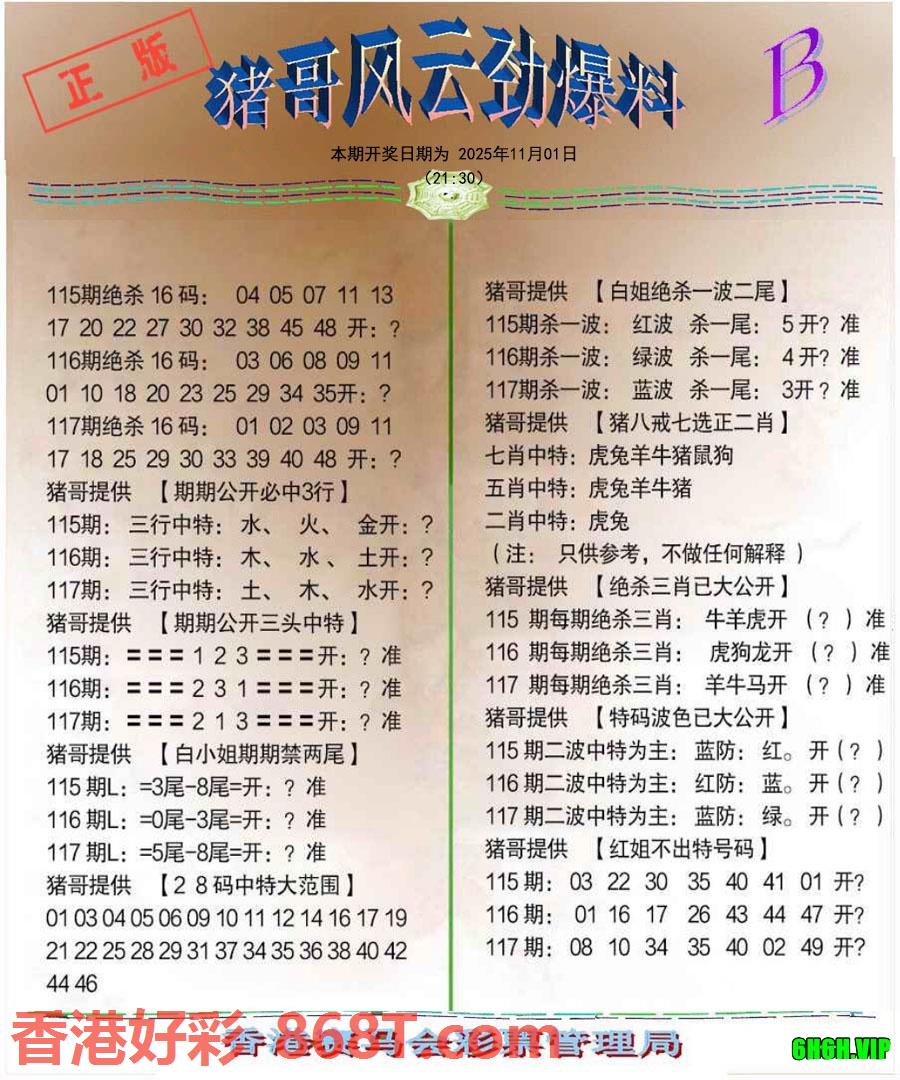 正版
猪哥风云劲爆料
B
本期开奖日期为 2025年11月01日
(21:30)
115期绝杀 16 码： 04 05 07 11 13
17 20 22 27 30 32 38 45 48 开：?
116期绝杀 16 码： 03 06 08 09 11
01 10 18 20 23 25 29 34 35开：?
117期绝杀 16 码： 01 02 03 09 11
17 18 25 29 30 33 39 40 48 开：?
猪哥提供 【期期公开必中3行】
115期： 三行中特： 水、 火、 金开：?
116期： 三行中特： 木、 水、 土开：?
117期： 三行中特： 土、 木、 水开：?
猪哥提供 【期期公开三头中特】
115期：===1 2 3===开：? 准
116期：===2 3 1===开：? 准
117期：===2 1 3===开：? 准
猪哥提供 【白小姐期期禁两尾】
115 期L：=3尾-8尾=开：? 准
116 期L：=0尾-3尾=开：? 准
117 期L：=5尾-8尾=开：? 准
猪哥提供 【28码中特大范围】
01 03 04 05 06 09 10 11 12 14 16 17 19
21 22 25 28 29 31 37 34 35 36 38 40 42
44 46
猪哥提供 【白姐绝杀一波二尾】
115期杀一波： 红波 杀一尾： 5 开? 准
116期杀一波： 绿波 杀一尾： 4 开? 准
117期杀一波： 蓝波 杀一尾： 3开 ? 准
猪哥提供 【猪八戒七选正二肖】
七肖中特：虎兔羊牛猪鼠狗
五肖中特：虎兔羊牛猪
二肖中特：虎兔
（注： 只供参考，不做任何解释 ）
猪哥提供 【绝杀三肖已大公开】
115 期每期绝杀三肖： 牛羊虎开 （? ）准
116 期每期绝杀三肖： 虎狗龙开 （? ）准
117 期每期绝杀三肖： 羊牛马开 （? ）准
猪哥提供 【特码波色已大公开】
115 期二波中特为主：蓝防：红。开（? ）
116 期二波中特为主：红防：蓝。开（? ）
117 期二波中特为主：蓝防：绿。开（? ）
猪哥提供 【红姐不出特号码】
115 期： 03 22 30 35 40 41 01 开?
116 期： 01 16 17 26 43 44 47 开?
117 期： 08 10 34 35 40 02 49 开?
香港好彩 868T.com
香港赛马会彩票管理局
6H6H.VIP